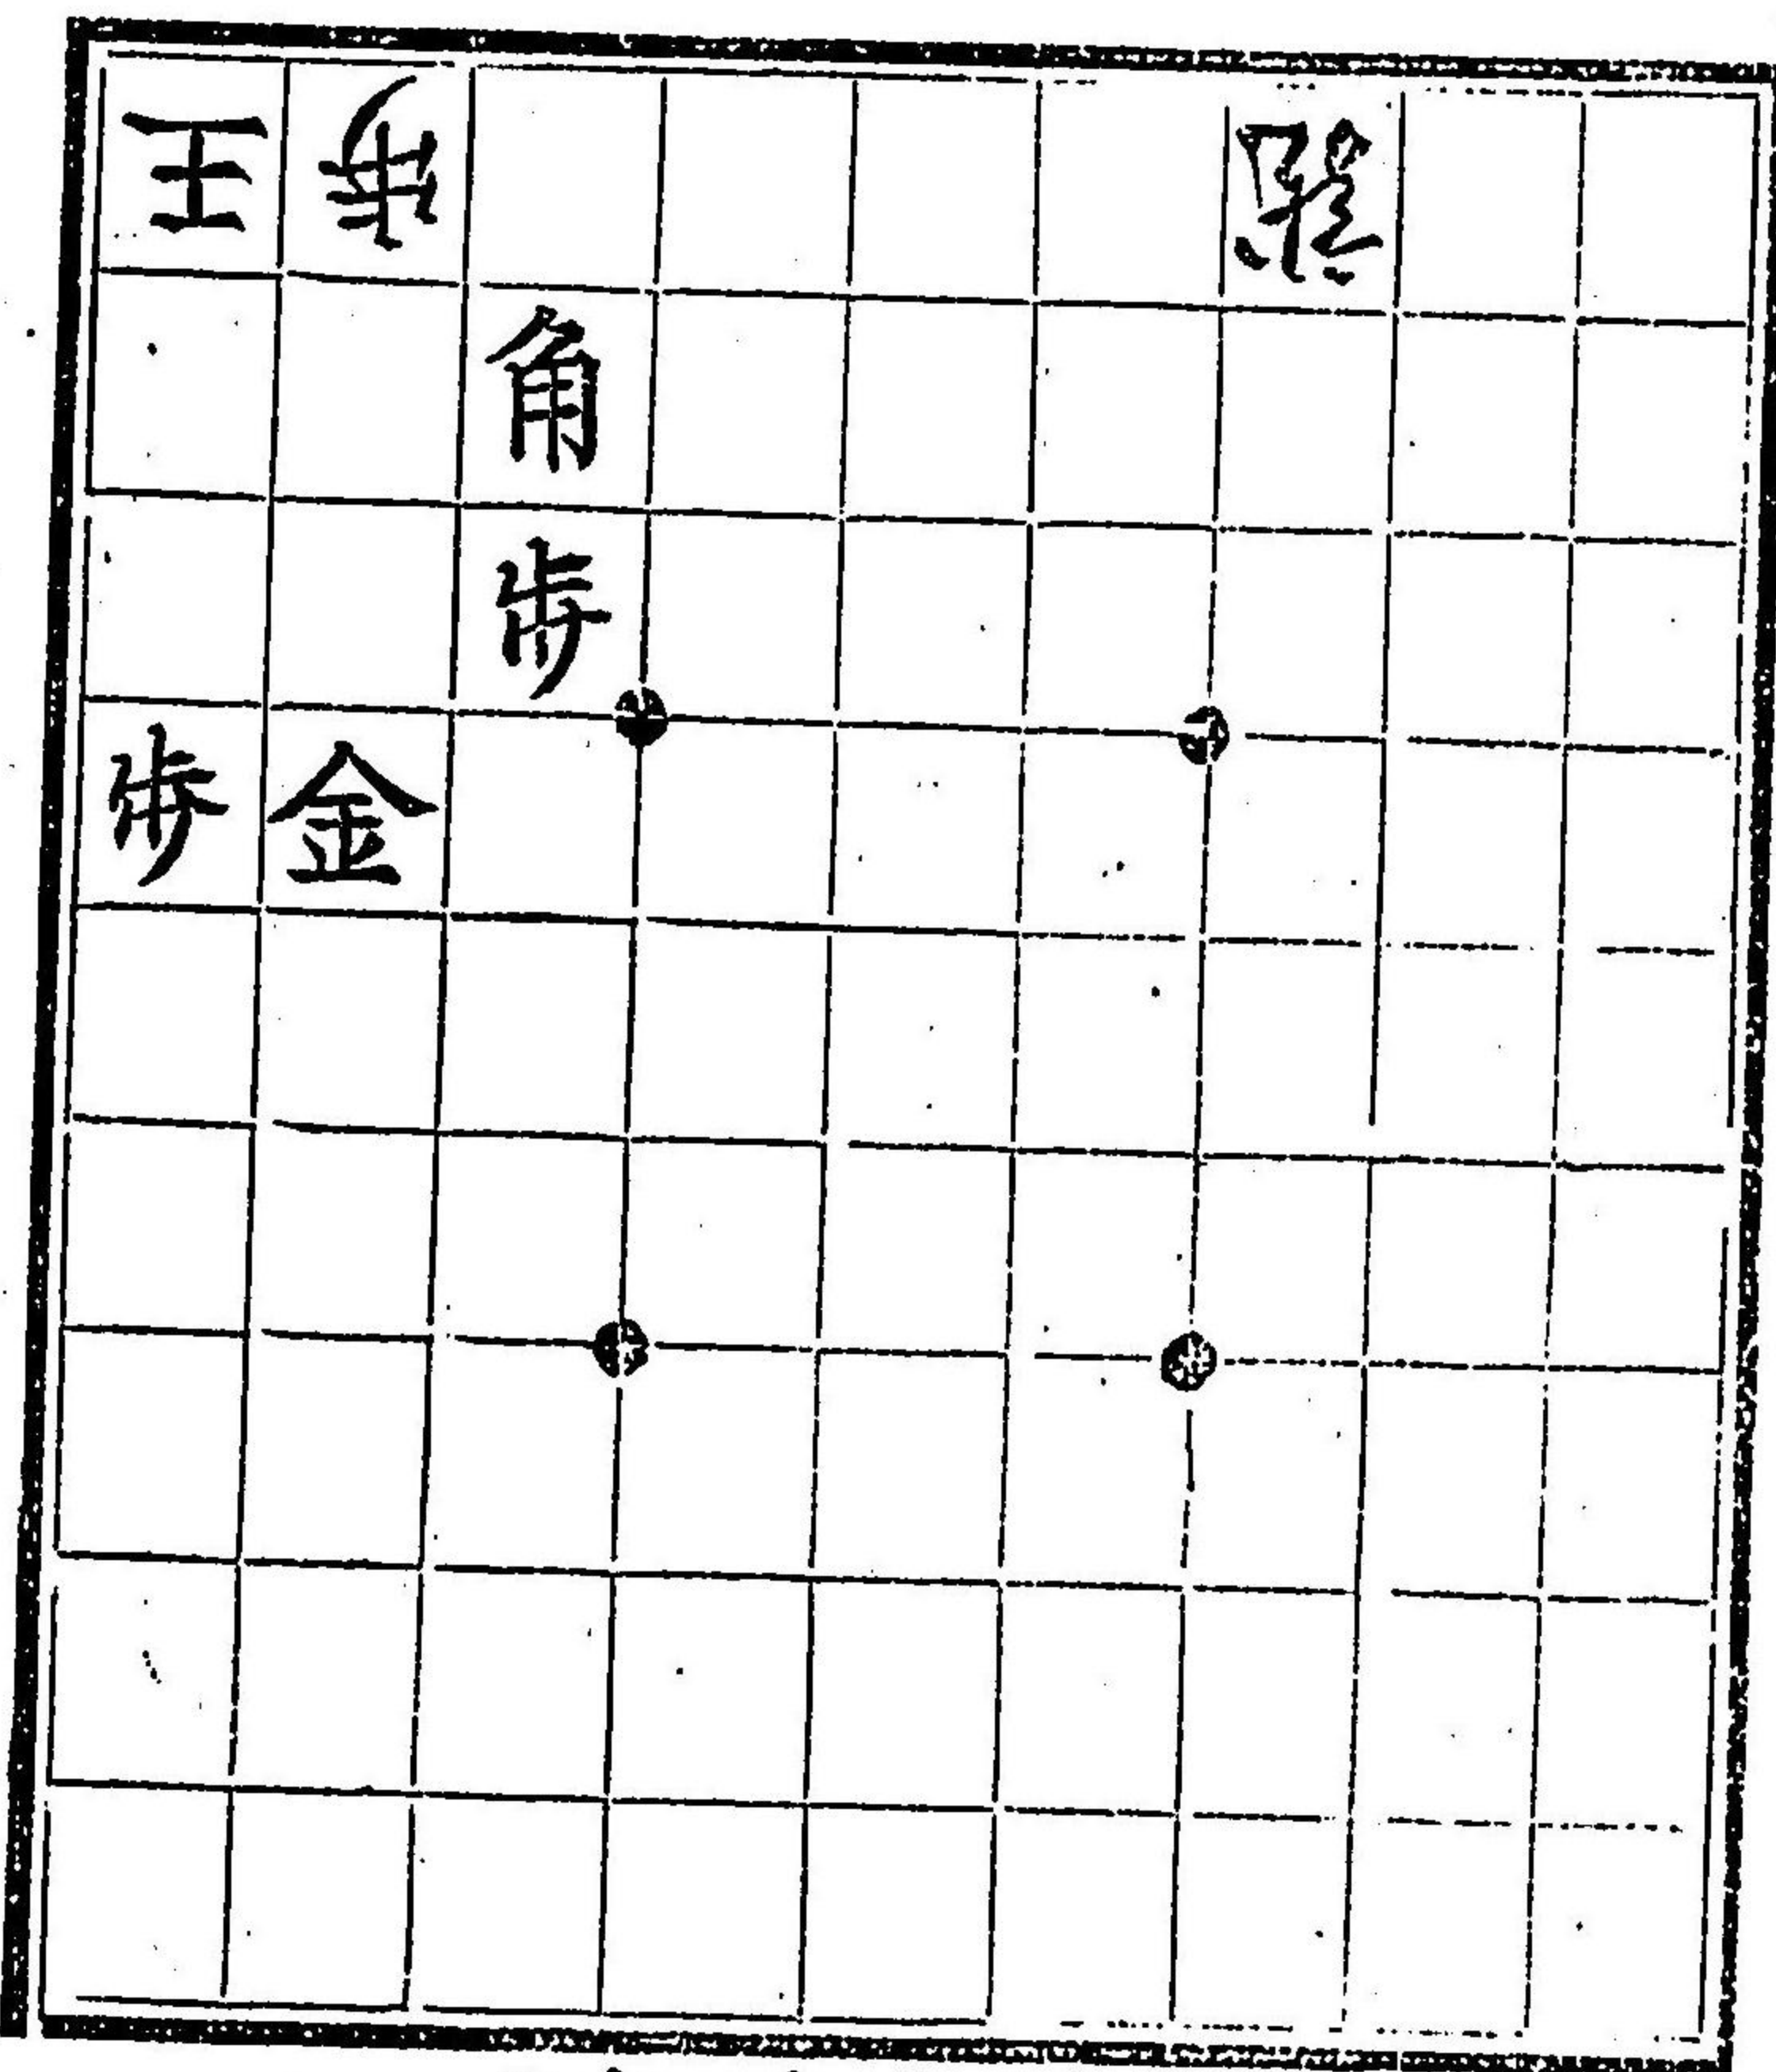 王 歩
角
歩
歩 金